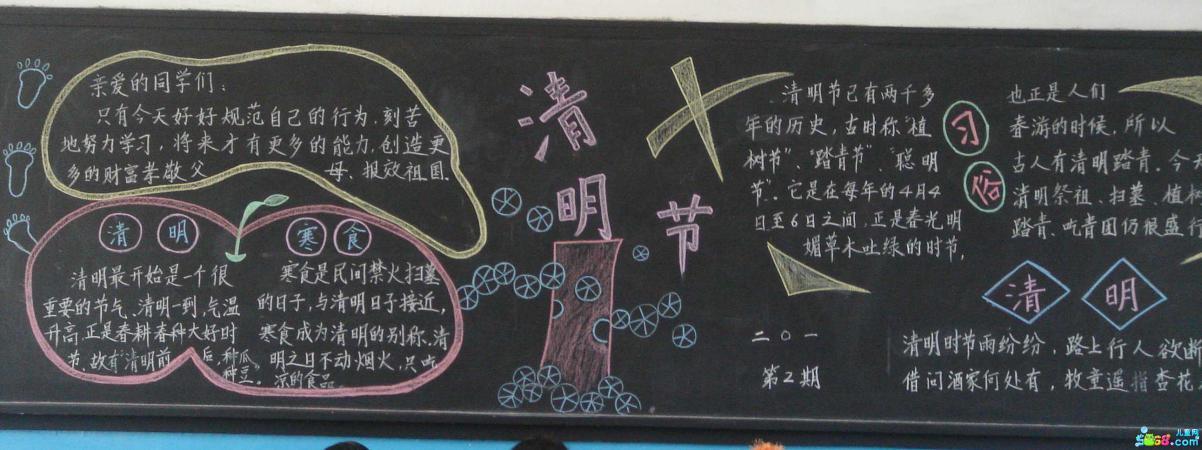 亲爱的同学们：
只有今天好好规范自己的行为，刻苦
地努力学习，将来才有更多的能力，创造更
多的财富孝敬父母、报效祖国。
清明
清明最开始是一个很
重要的节气、清明一到，气温
升高，正是春耕春种大好时
节，故有“清明前后，种瓜
种豆。
寒食
寒食是民间禁火扫墓
的日子，与清明日子接近，
寒食成为清明的别称。清
明之日不动烟火，只吃
凉的食品。
清明节
清明节已有两千多
年的历史，古时称“植
树节”、“踏青节”、“聪明
节”。它是在每年的4月4
日至6日之间，正是春光明
媚草木吐绿的时节，
习俗
也正是人们
春游的时候，所以
古人有清明踏青。今
清明祭祖、扫墓、植
踏青、吃青团仍很盛行
二〇一
第2期
清明
清明时节雨纷纷，路上行人欲断
借问酒家何处有，牧童遥指杏花
儿童网
5068.com